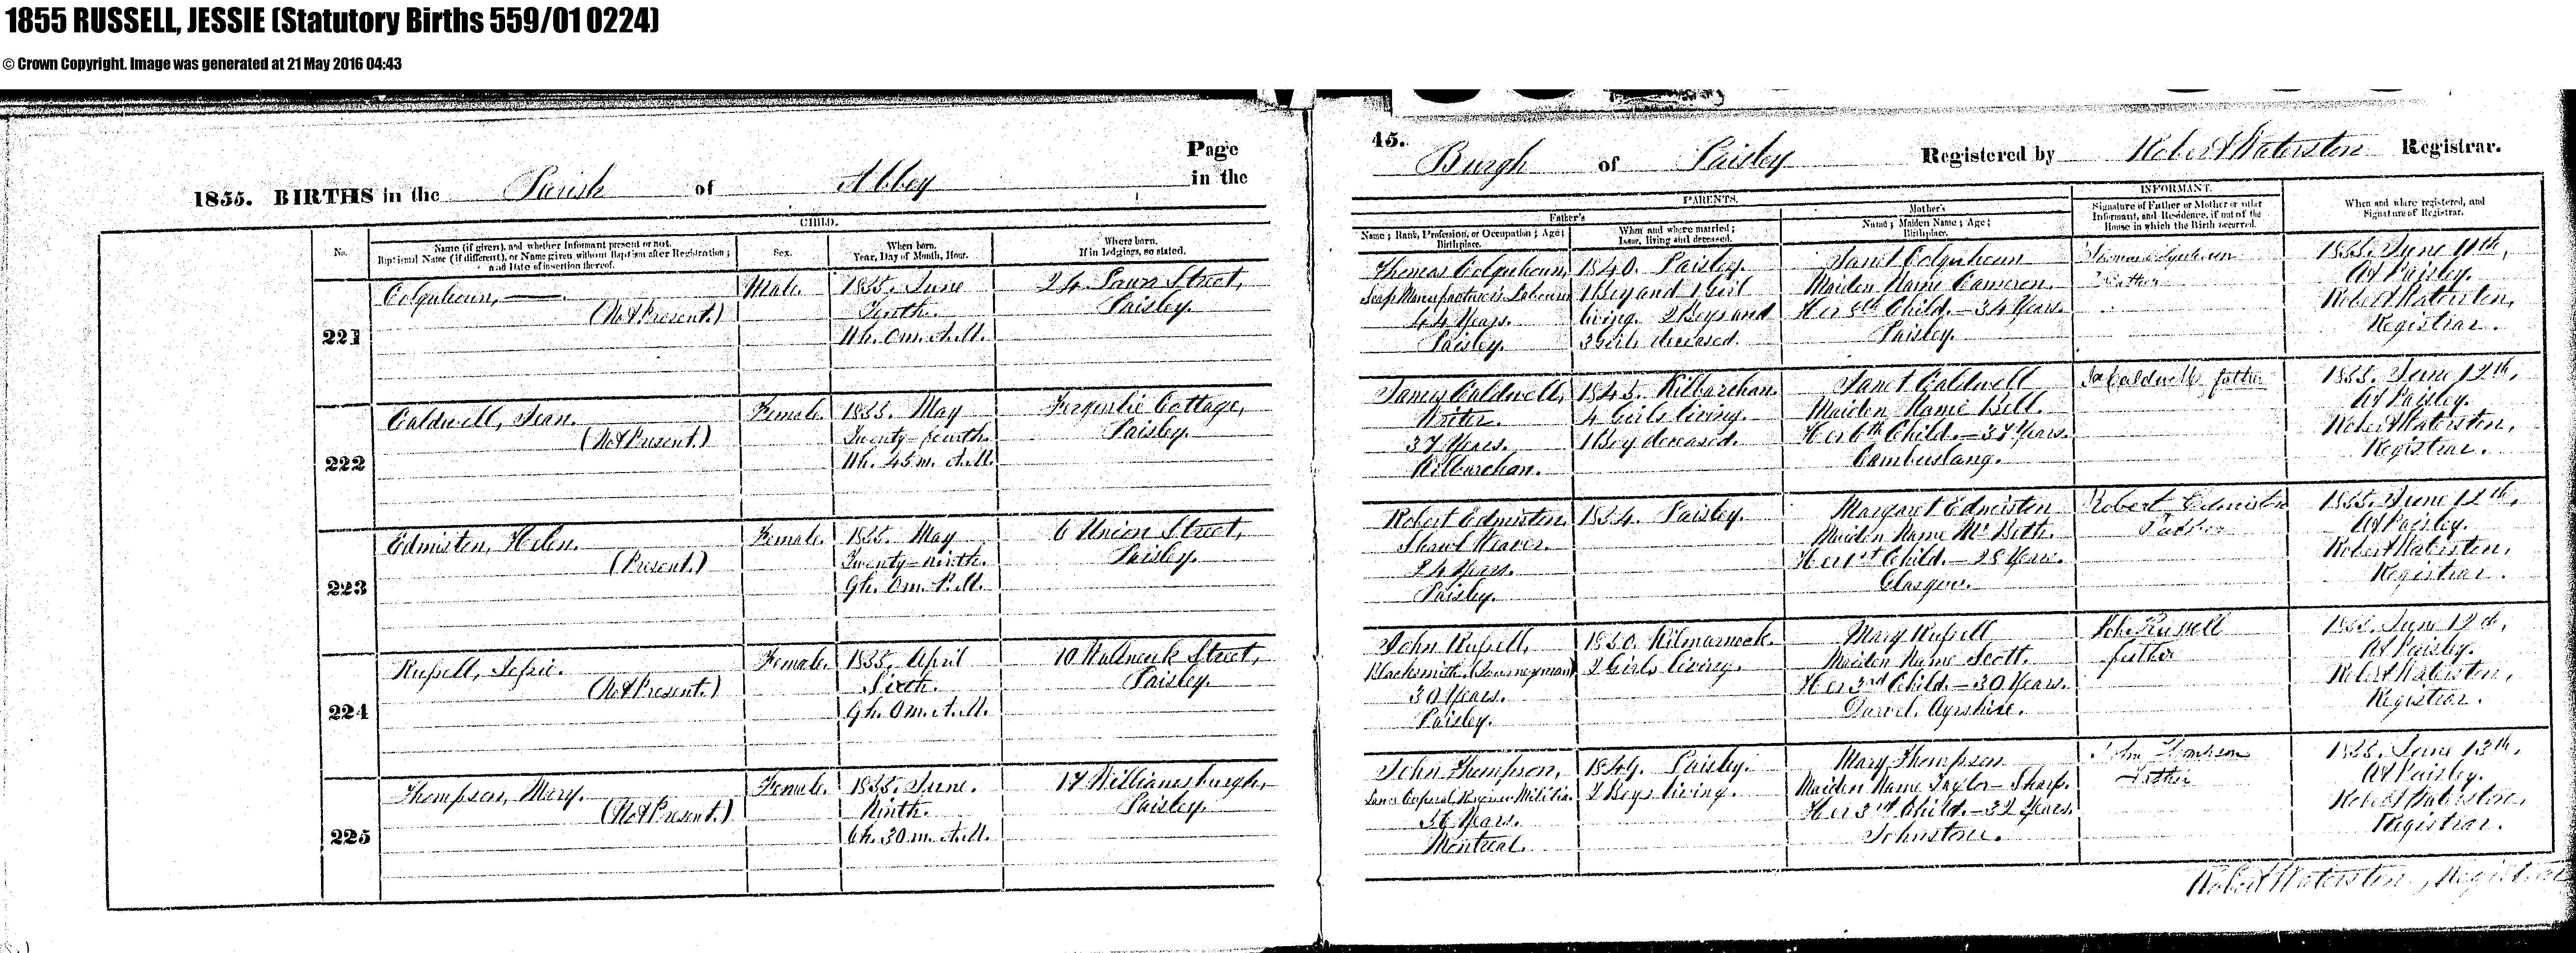 1855 RUSSELL, JESSIE (Statutory Births 559/01 0224)
© Crown Copyright. Image was generated at 21 May 2016 04:43
Page 45.
1855. BIRTHS in the Parish of Abbey in the Burgh of Paisley Registered by Robert Waterston Registrar.
CHILD.
PARENTS.
INFORMANT.
No.
Name (if given), and whether Informant present or not.
Baptismal Name (if different), or Name given without Baptism after Registration;
and Date of insertion thereof.
Sex.
When born.
Year, Day of Month, Hour.
Where born.
If in lodgings, so stated.
Father's
Name; Rank, Profession, or Occupation; Age;
Birthplace.
When and where married;
Issue, living and deceased.
Mother's
Name; Maiden Name; Age;
Birthplace.
Signature of Father or Mother or other
Informant, and Residence, if out of the
House in which the Birth occurred.
When and where registered, and
Signature of Registrar.
221
Colquhoun, —.
(Not Present.)
Male.
1855. June
Tenth.
11h. 0m. A.M.
24. Lawn Street,
Paisley.
Thomas Colquhoun,
Soap Manufacturer's Labourer
44 Years.
Paisley.
1840. Paisley.
1 Boy and 1 Girl
living. 2 Boys and
3 Girls deceased.
Janet Colquhoun
Maiden Name Cameron.
Her 8th Child.—34 Years.
Paisley.
Thomas Colquhoun
Father
1855. June 11th,
At Paisley.
Robert Waterston,
Registrar.
222
Caldwell, Jean.
(Not Present.)
Female.
1855. May
Twenty-fourth.
11h. 45m. A.M.
Ferguslie Cottage,
Paisley.
James Caldwell,
Writer.
37 Years.
Kilbarchan.
1845. Kilbarchan.
4 Girls living.
1 Boy deceased.
Janet Caldwell
Maiden Name Bell.
Her 6th Child.—37 Years.
Cambuslang.
Ja Caldwell father
1855. June 12th,
At Paisley.
Robert Waterston,
Registrar.
223
Edmiston, Helen.
(Present.)
Female.
1855. May
Twenty-ninth.
9h. 0m. P.M.
6 Union Street,
Paisley.
Robert Edmiston,
Shawl Weaver.
24 Years.
Paisley.
1854. Paisley.
Margaret Edmiston
Maiden Name McBeth.
Her 1st Child.—25 Years.
Glasgow.
Robert Edmiston
Father
1855. June 12th,
At Paisley.
Robert Waterston,
Registrar.
224
Russell, Jessie.
(Not Present.)
Female.
1855. April
Sixth.
9h. 0m. A.M.
10 Walneuk Street,
Paisley.
John Russell,
Blacksmith (Journeyman)
30 Years.
Paisley.
1850. Kilmarnock.
2 Girls living.
Mary Russell
Maiden Name Scott.
Her 3rd Child.—30 Years.
Darvel, Ayrshire.
John Russell
father
1855. June 12th,
At Paisley.
Robert Waterston,
Registrar.
225
Thompson, Mary.
(Not Present.)
Female.
1855. June.
Ninth.
6h. 30m. A.M.
17 Williamsburgh,
Paisley.
John Thompson,
Militia.
36 Years.
Montreal.
1849. Paisley.
2 Boys living.
Mary Thompson
Maiden Name Taylor—Sharp.
Her 3rd Child.—32 Years.
Johnstone.
John Thompson
Father
1855. June 13th,
At Paisley.
Robert Waterston,
Registrar.
Robert Waterston, Registrar